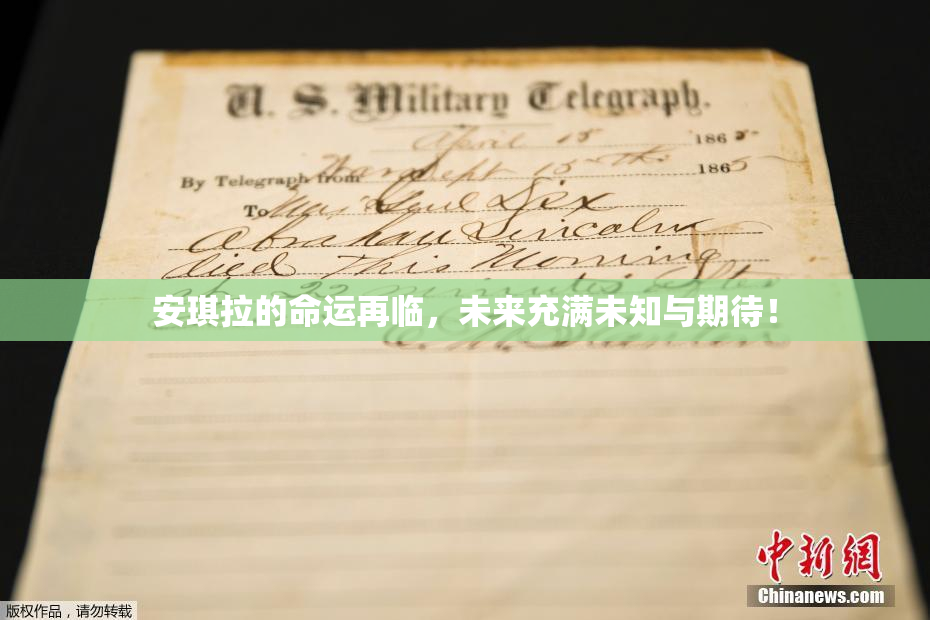 U. S. Military Telegraph.
April 15 1865
By Telegraph from War Dept 15th 1865
To Maj Genl Dix
Abraham Lincoln
died This Morning
at 22 minutes after
安琪拉的命运再临，未来充满未知与期待！
E. M. Stanton
中新网
Chinanews.com
版权作品，请勿转载